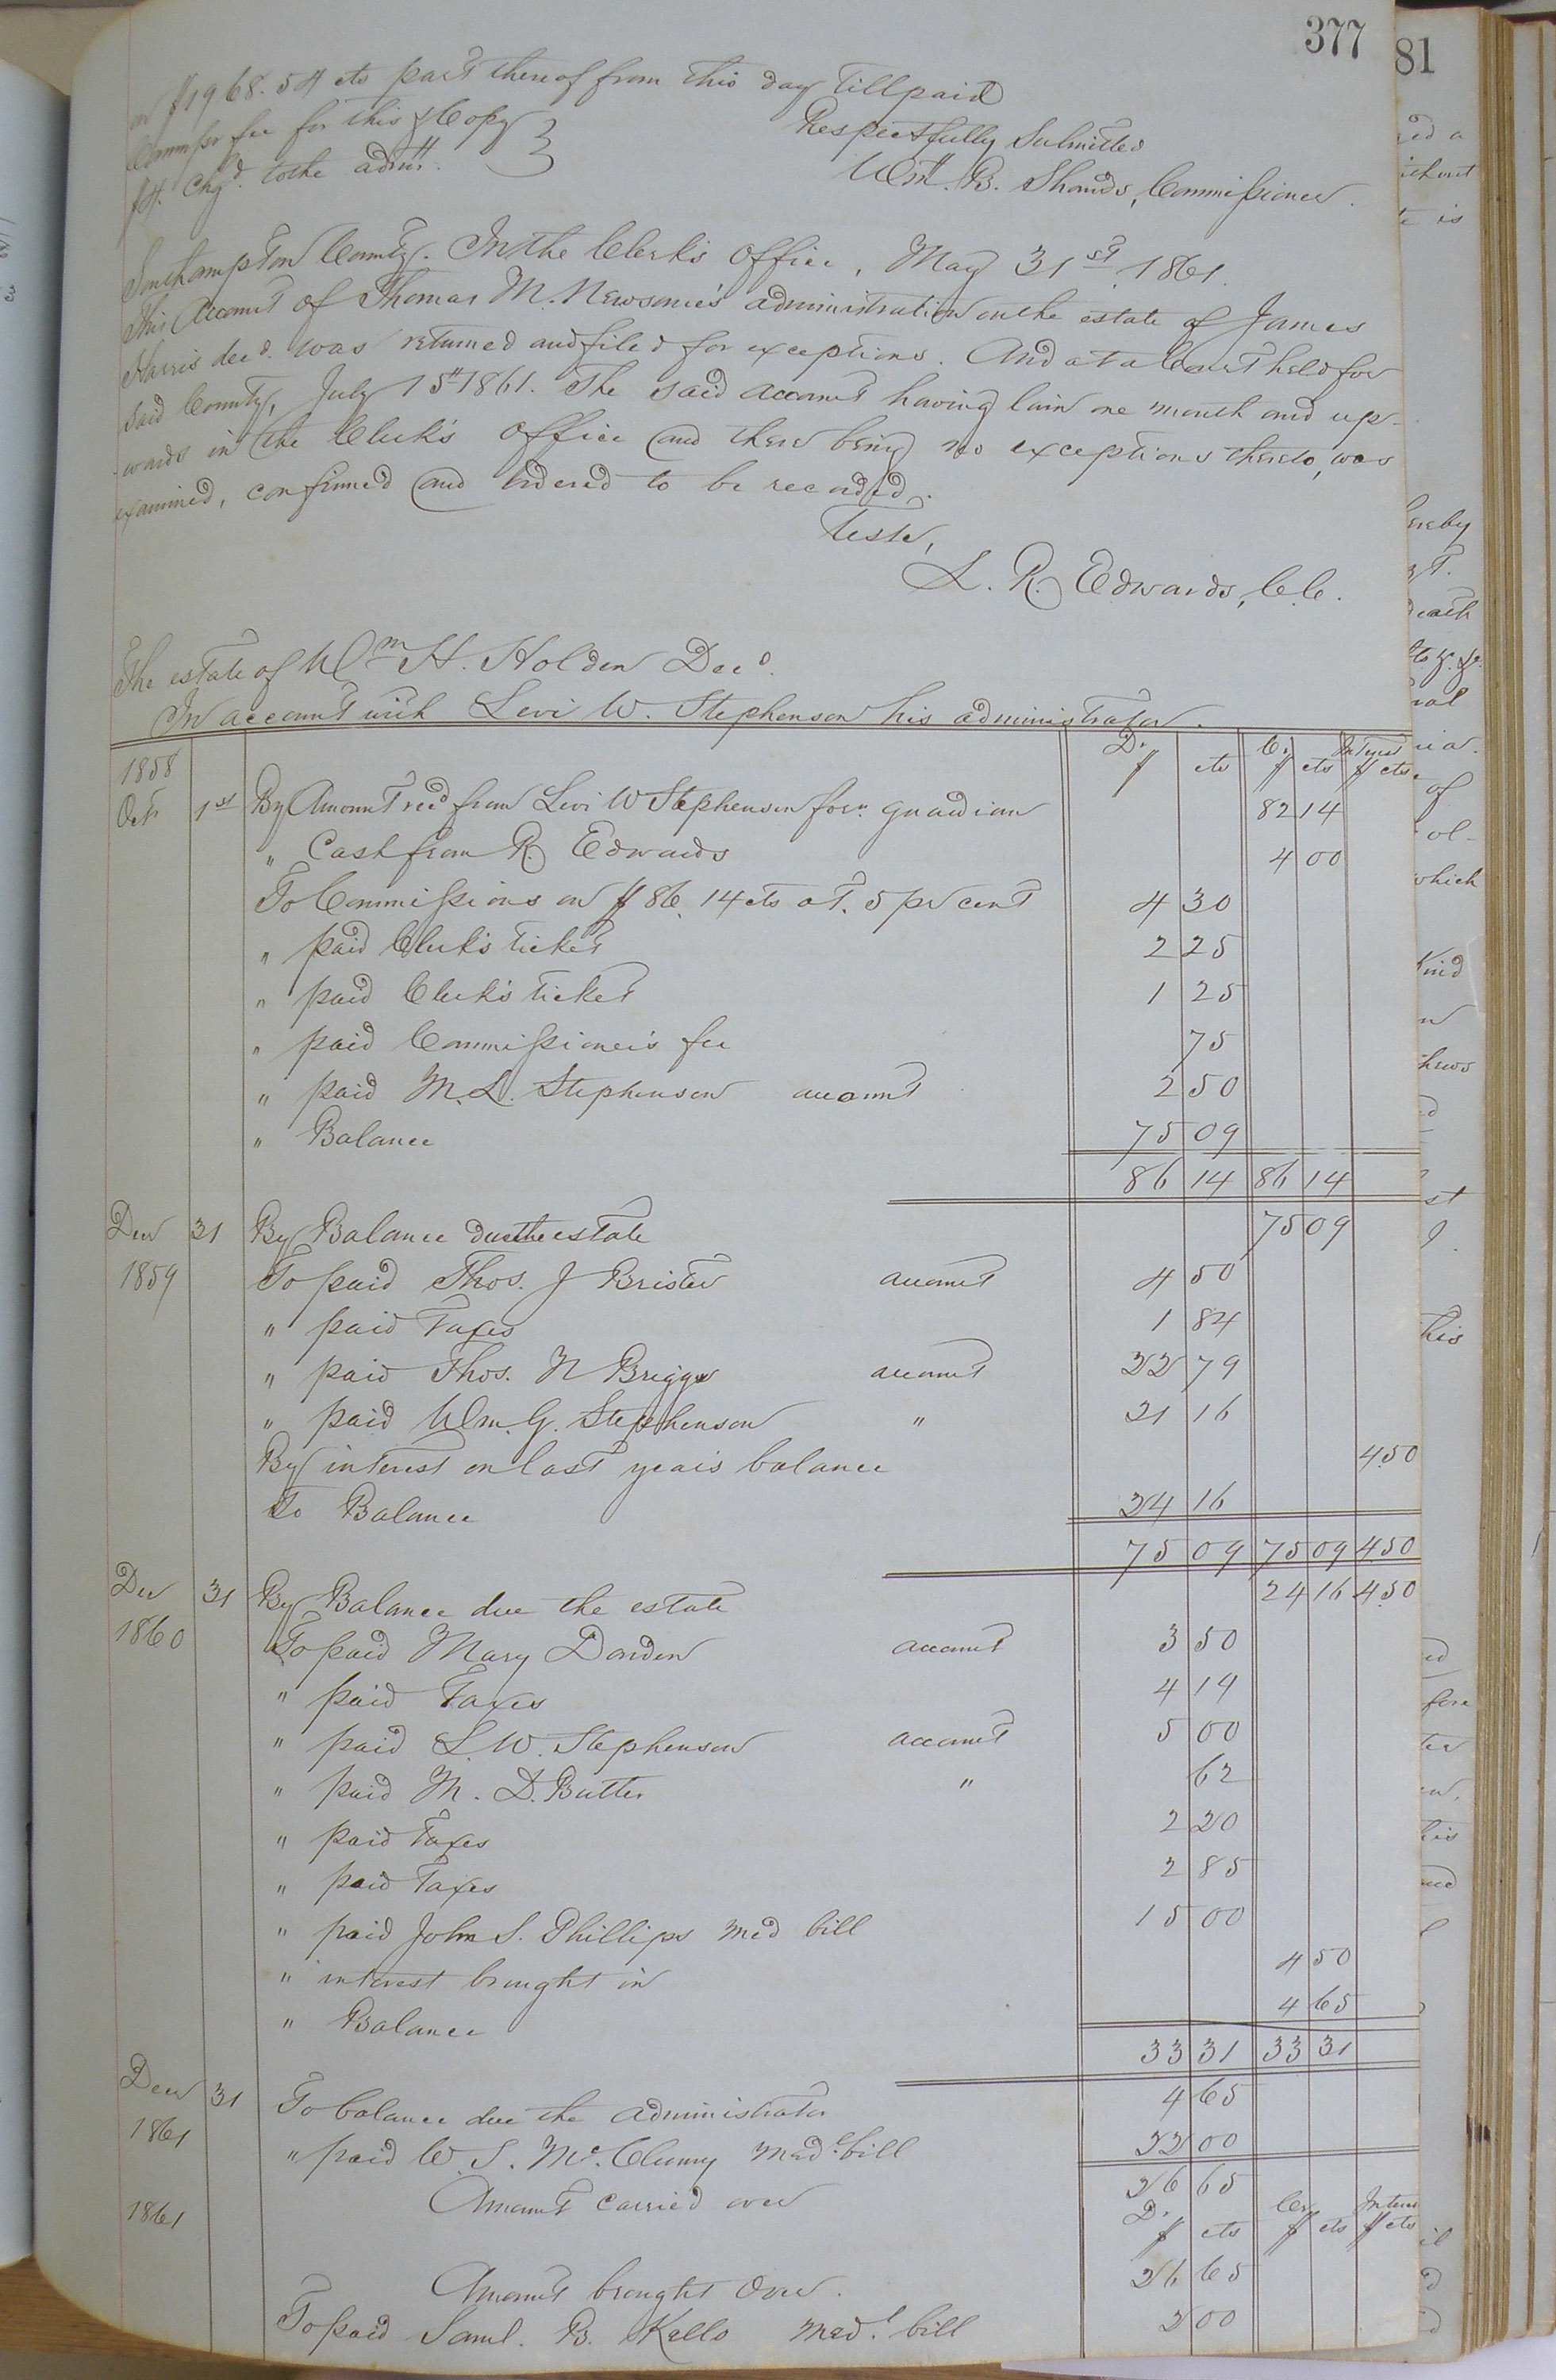 377
81
on $1968.54 cts part thereof from this day till paid
Commissr fee for this & Copy } Respectfully Submitted
$4. Chgd. to the admr. Wm. B. Shands, Commissioner.
Southampton County. In the Clerk's Office, May 31st 1861.
This Account of Thomas M. Newsome's administration on the estate of James
Harris decd. was returned and filed for exceptions. And at a Court held for
said County, July 15th 1861. The said account having lain one month and up-
-wards in the Clerk's office and there being no exceptions thereto, was
examined, confirmed and ordered to be recorded.
Teste,
L. R. Edwards, C.C.
The estate of Wm H. Holden Decd.
In account with Levi W. Stephenson his administrator.
1858 Dr. $ cts Cr. $ cts Interest $ cts
Oct 1st By Amount recd from Levi W Stephenson forr. guardian 82 14
" Cash from R. Edwards 4 00
To Commissions on $86.14 cts at. 5 pr cent 4 30
" paid Clerk's ticket 2 25
" paid Clerk's ticket 1 25
" paid Commissioner's fee 75
" paid M. L. Stephenson account 2 50
" Balance 75 09
86 14 86 14
Decr 31 By Balance due the estate 75 09
1859 To paid Thos. J Brister account 4 50
" paid Taxes 1 84
" paid Thos. N Briggs account 22 79
" paid Wm. G. Stephenson " 21 16
By interest on last year's balance 4 50
To Balance 24 16
75 09 75 09 4 50
Decr 31 By Balance due the estate 24 16 4 50
1860 To paid Mary Darden account 3 50
" paid Taxes 4 14
" paid L. W. Stephenson account 5 00
" paid M. D. Butler " 62
" paid Taxes 2 20
" paid Taxes 2 85
" paid John S. Phillips med bill 15 00
" interest brought in 4 50
" Balance 4 65
33 31 33 31
Decr 31 To balance due the administrator 4 65
1861 " paid W. S. Mc. Clenny Medl. bill 22 00
Amount carried over 26 65
1861 Dr. $ cts Cr. $ cts Interest $ cts
Amount brought Over. 26 65
To paid Saml. B. Kello Medl. bill 2 00